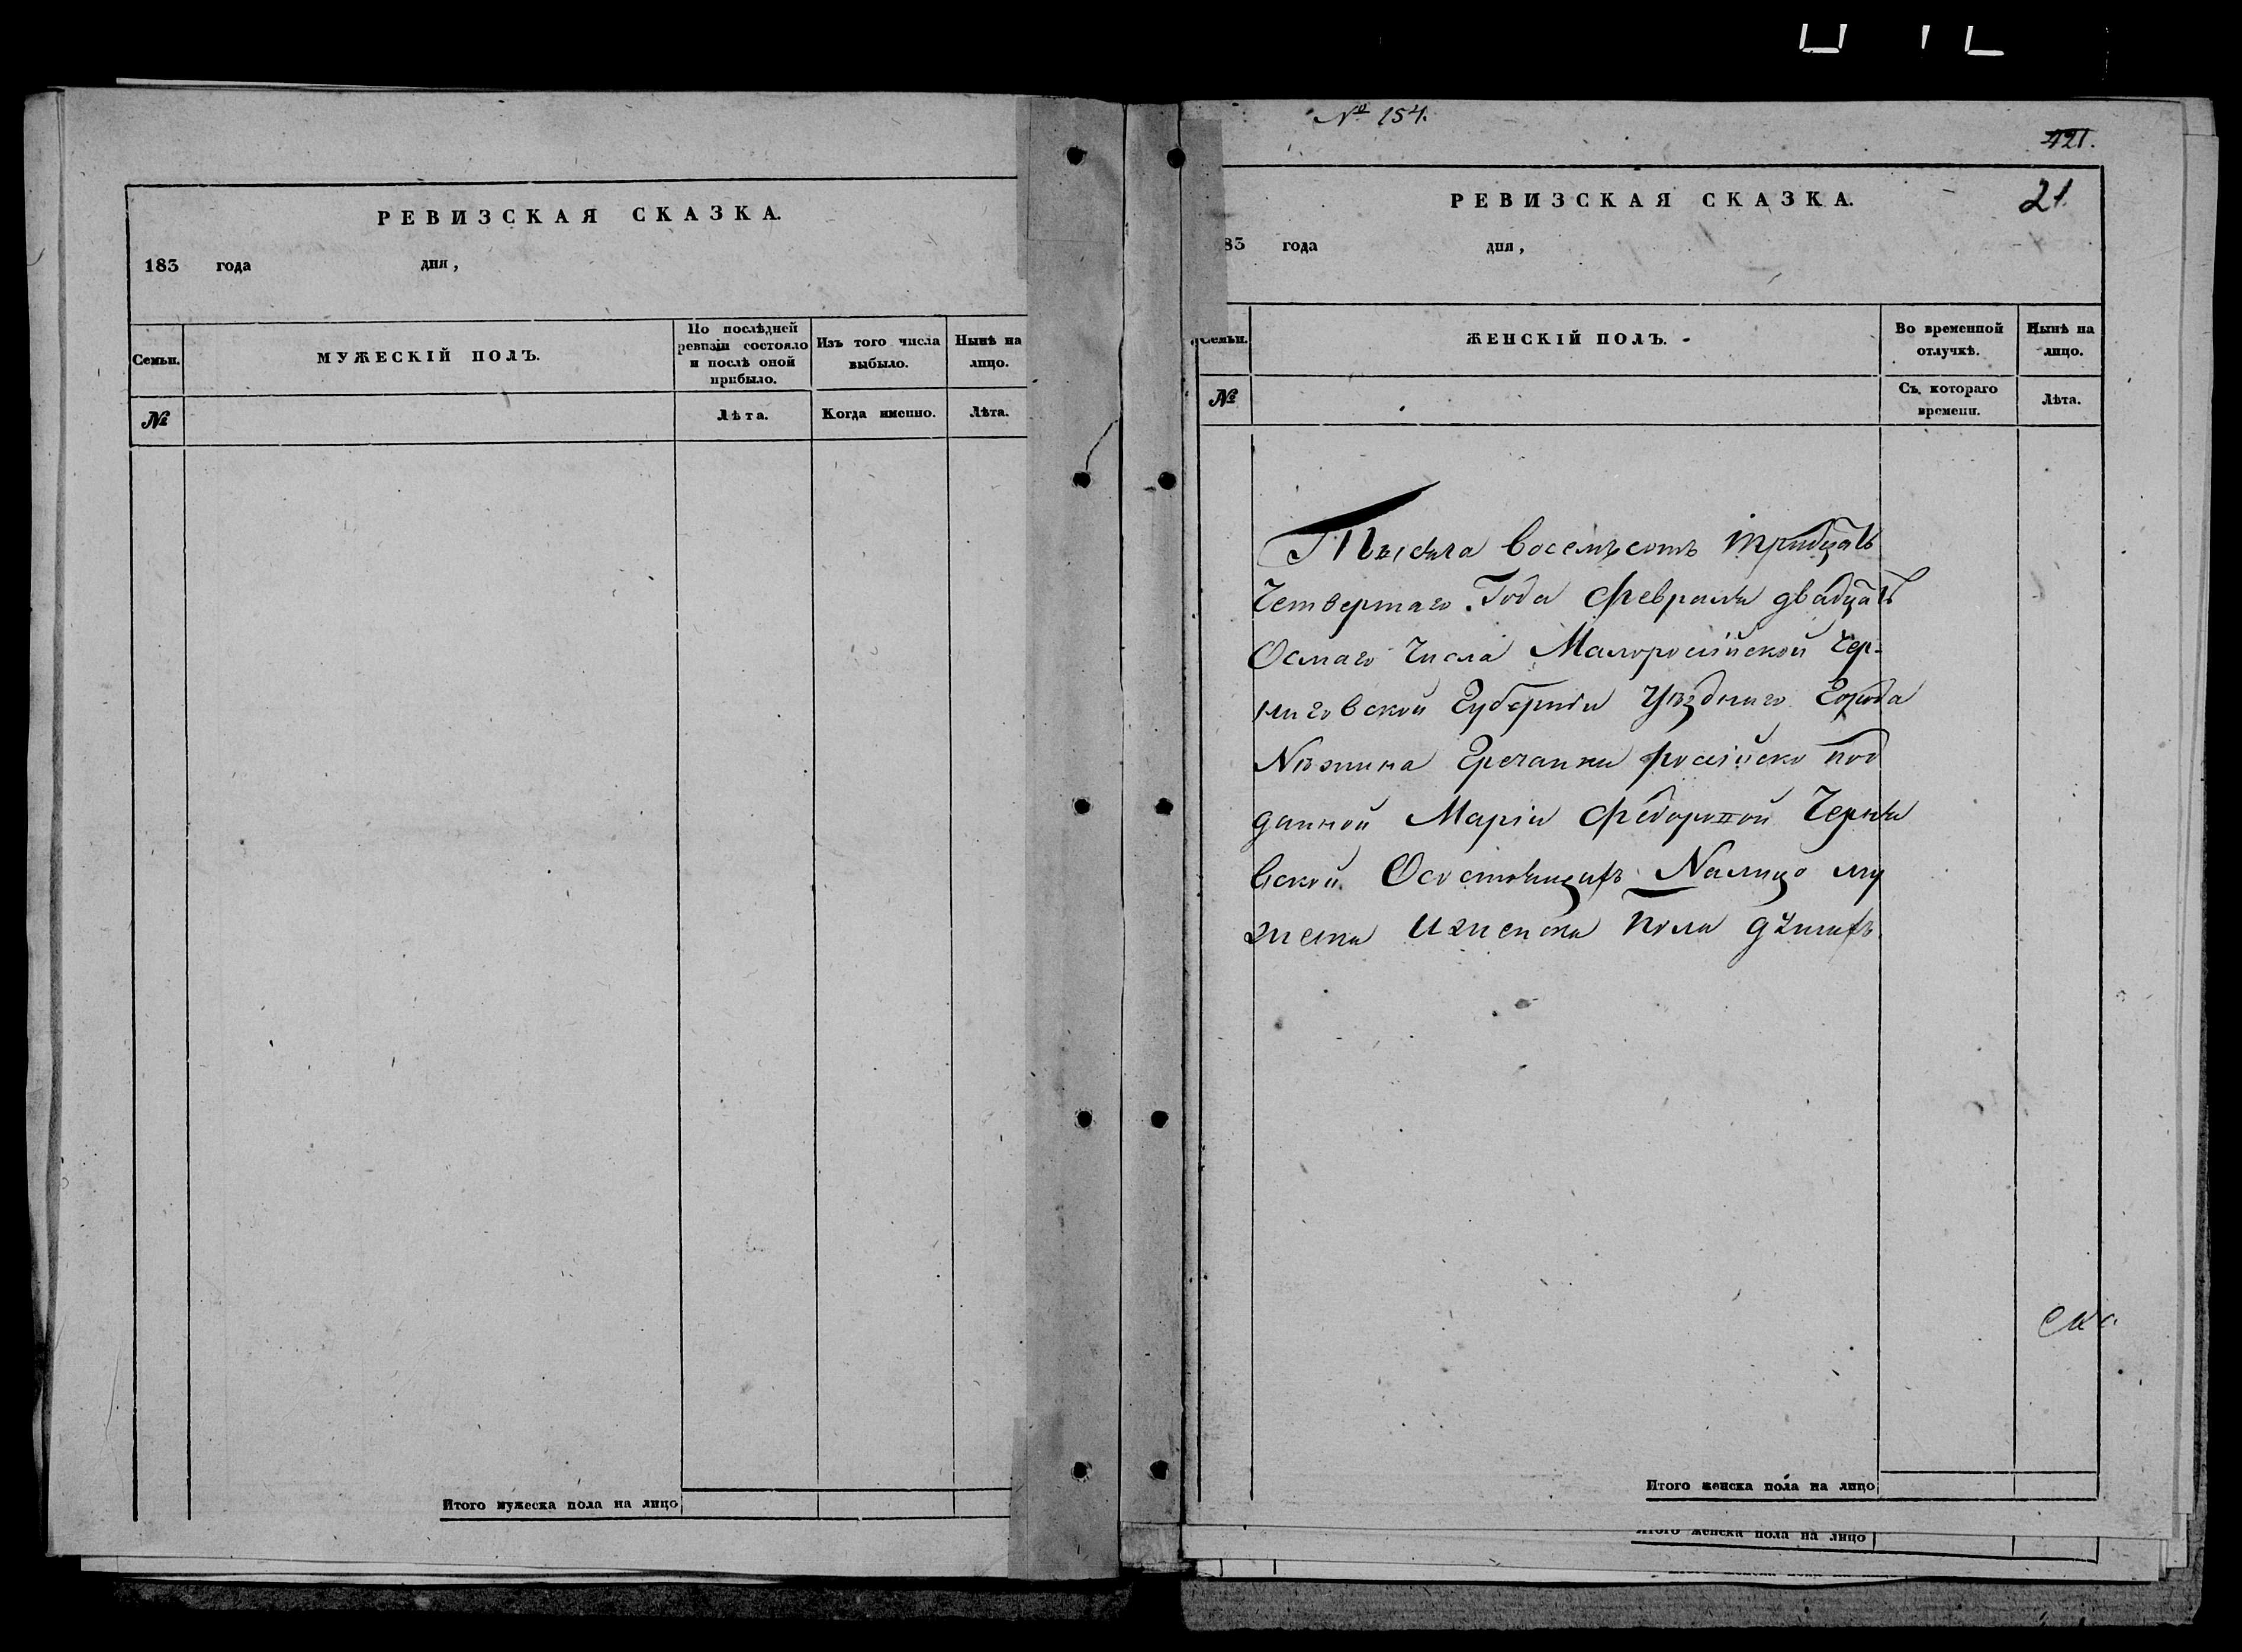 РЕВИЗСКАЯ СКАЗКА.
183 года дня,
Семьи.
МУЖЕСКІЙ ПОЛЪ.
По послѣдней ревизіи состояло и послѣ оной прибыло.
Изъ того числа выбыло.
Нынѣ на лицо.
№
Лѣта.
Когда именно.
Лѣта.
Итого мужеска пола на лицо
№ 154.
421.
21.
РЕВИЗСКАЯ СКАЗКА.
83 года дня,
Семьи.
ЖЕНСКІЙ ПОЛЪ.
Во временной отлучкѣ.
Нынѣ на лицо.
№
Съ котораго времени.
Лѣта.
Тысяча восемъсотъ тридцать
Четвертаго Года февраля двадцать
Осмаго Числа Малоросійской Чер-
ниговской Губерніи Уѣзднаго Города
Нѣжина Гречанки російско под
данной Маріи Федоровой Черня
вской Осостоящихъ Налицо му
жеска ИЖенска пола душахъ.
ска
Итого женска пола на лицо
Итого женска пола на лицо